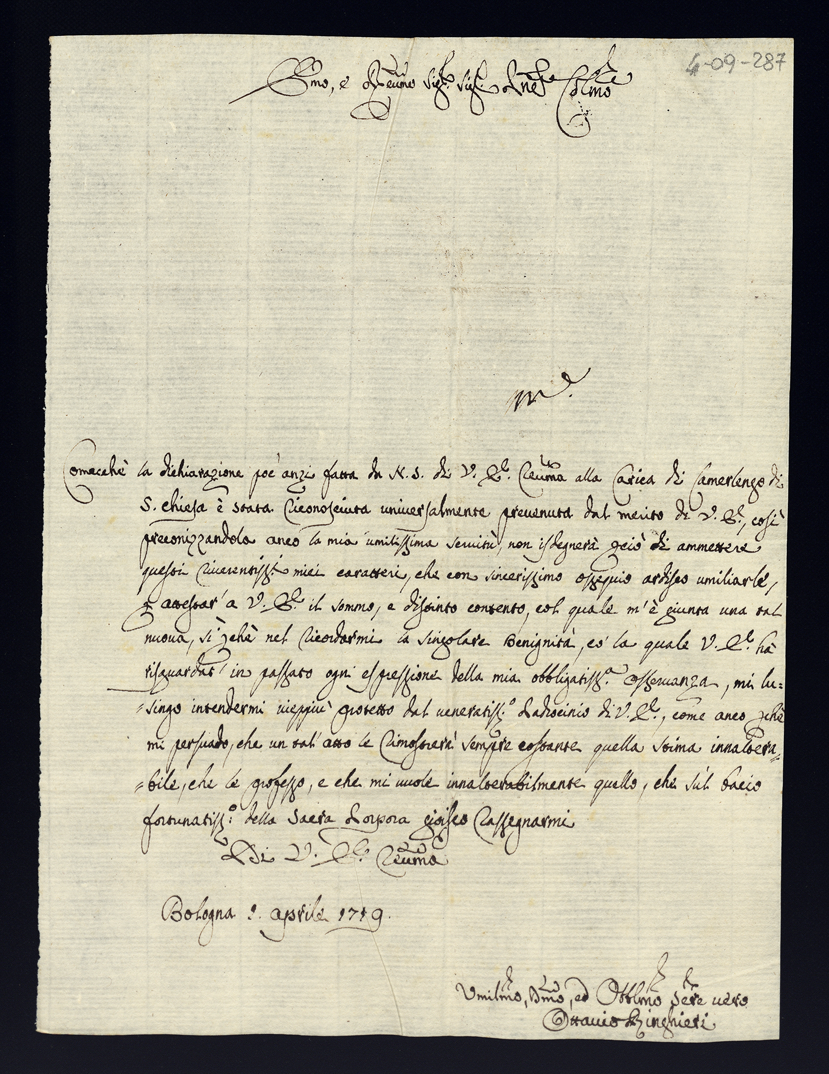 4-09-287
Emo, e Reumo Sigr. Sigr. Pne Colmo
Comecchè la dichiarazione poc'anzi fatta da N. S. di V. Eza. Reuma alla Carica di Camerlengo di
S. Chiesa è stata riconosciuta universalmente prevenuta dal merito di V. Eza., così
preconizzandola anco la mia umilissima servitù, non isdegnerà perciò di ammettere
questi riverentissi. miei caratteri, che con sincerissimo ossequio ardisco umiliarle,
p attestar' a V. Eza. il sommo, e distinto contento, col quale m'è giunta una tal
nuova, sì pchè nel ricordarmi la singolare Benignità, co' la quale V. Eza. hà
risguardat' in passato ogni espressione della mia obbligatissa. osservanza, mi lu=
=singo intendermi vieppiù protetto dal veneratisso. Padrocinio di V. Eza., come anco pchè
mi persuado, che un tal' atto le rimostrerà sempre costante quella stima inalterа=
=bile, che le professo, e che mi vuole innalterabilmente quello, che sù'l bacio
fortunatisso. della Sacra Porpora gioisco rassegnarmi
Di V. Eza. Reuma
Bologna aprile 1719.
Umilmo, Dmo, ed Obblmo Sere vero
Ottavio Ringhieri